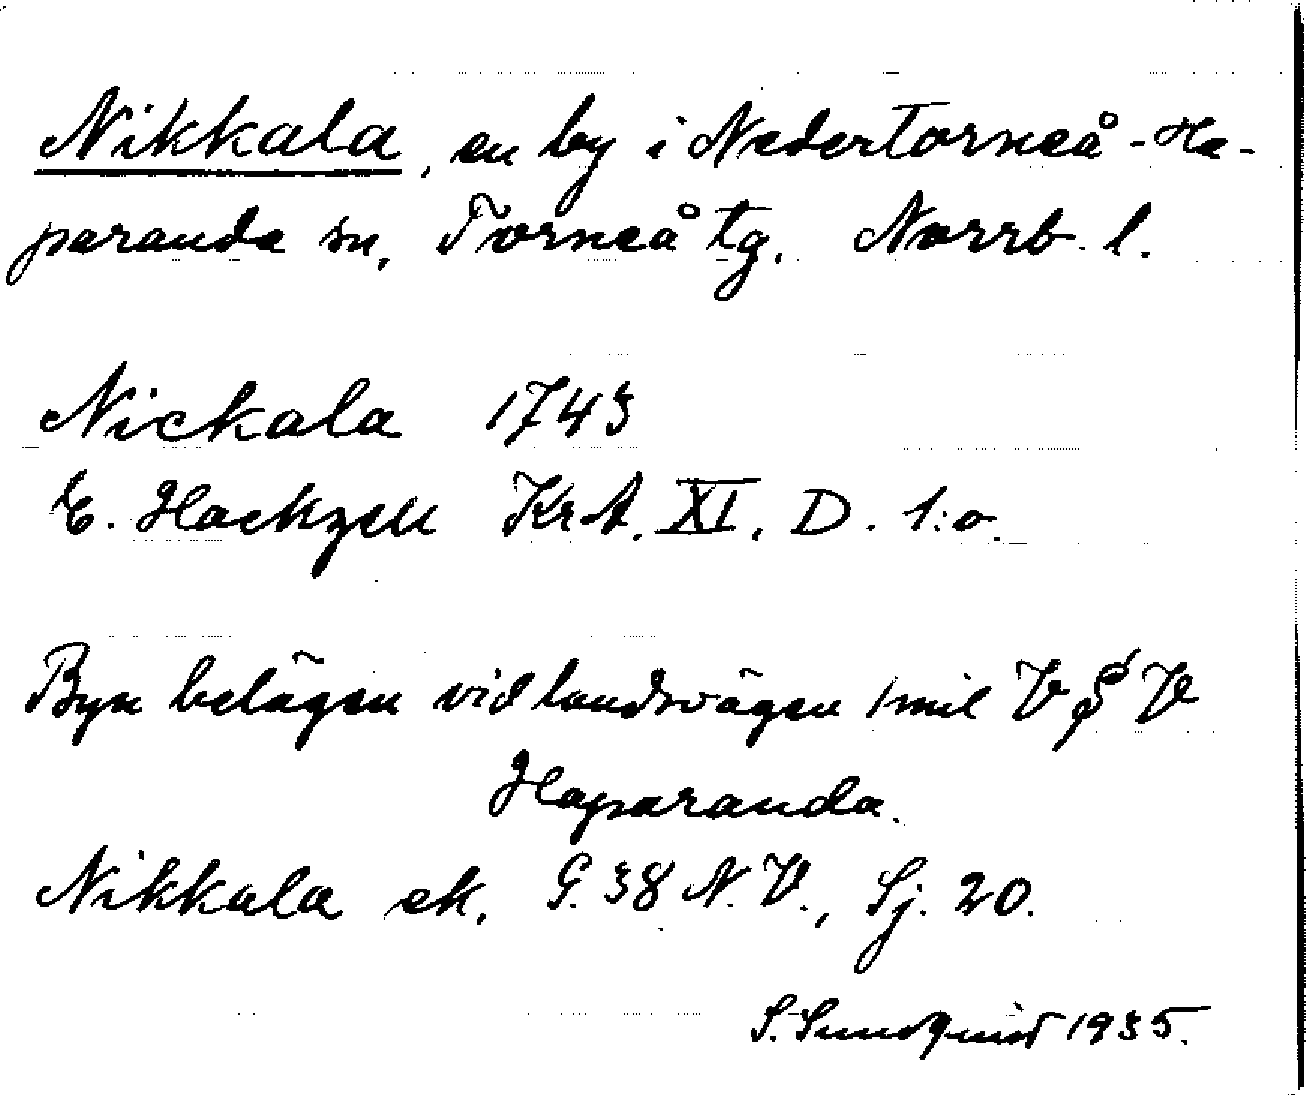 Nikkala, en by i Nedertorneå-Ha-
paranda sn, Torneå tg. Norrb. l.
Nickala 1743
E. Hackzell Kr. A. XI. D. 1:o.
Byn belägen vid landsvägen 1 mil V § V
Haparanda.
Nikkala ek. G. 38 N. V., Sj. 20.
S. Sundquist 1935.